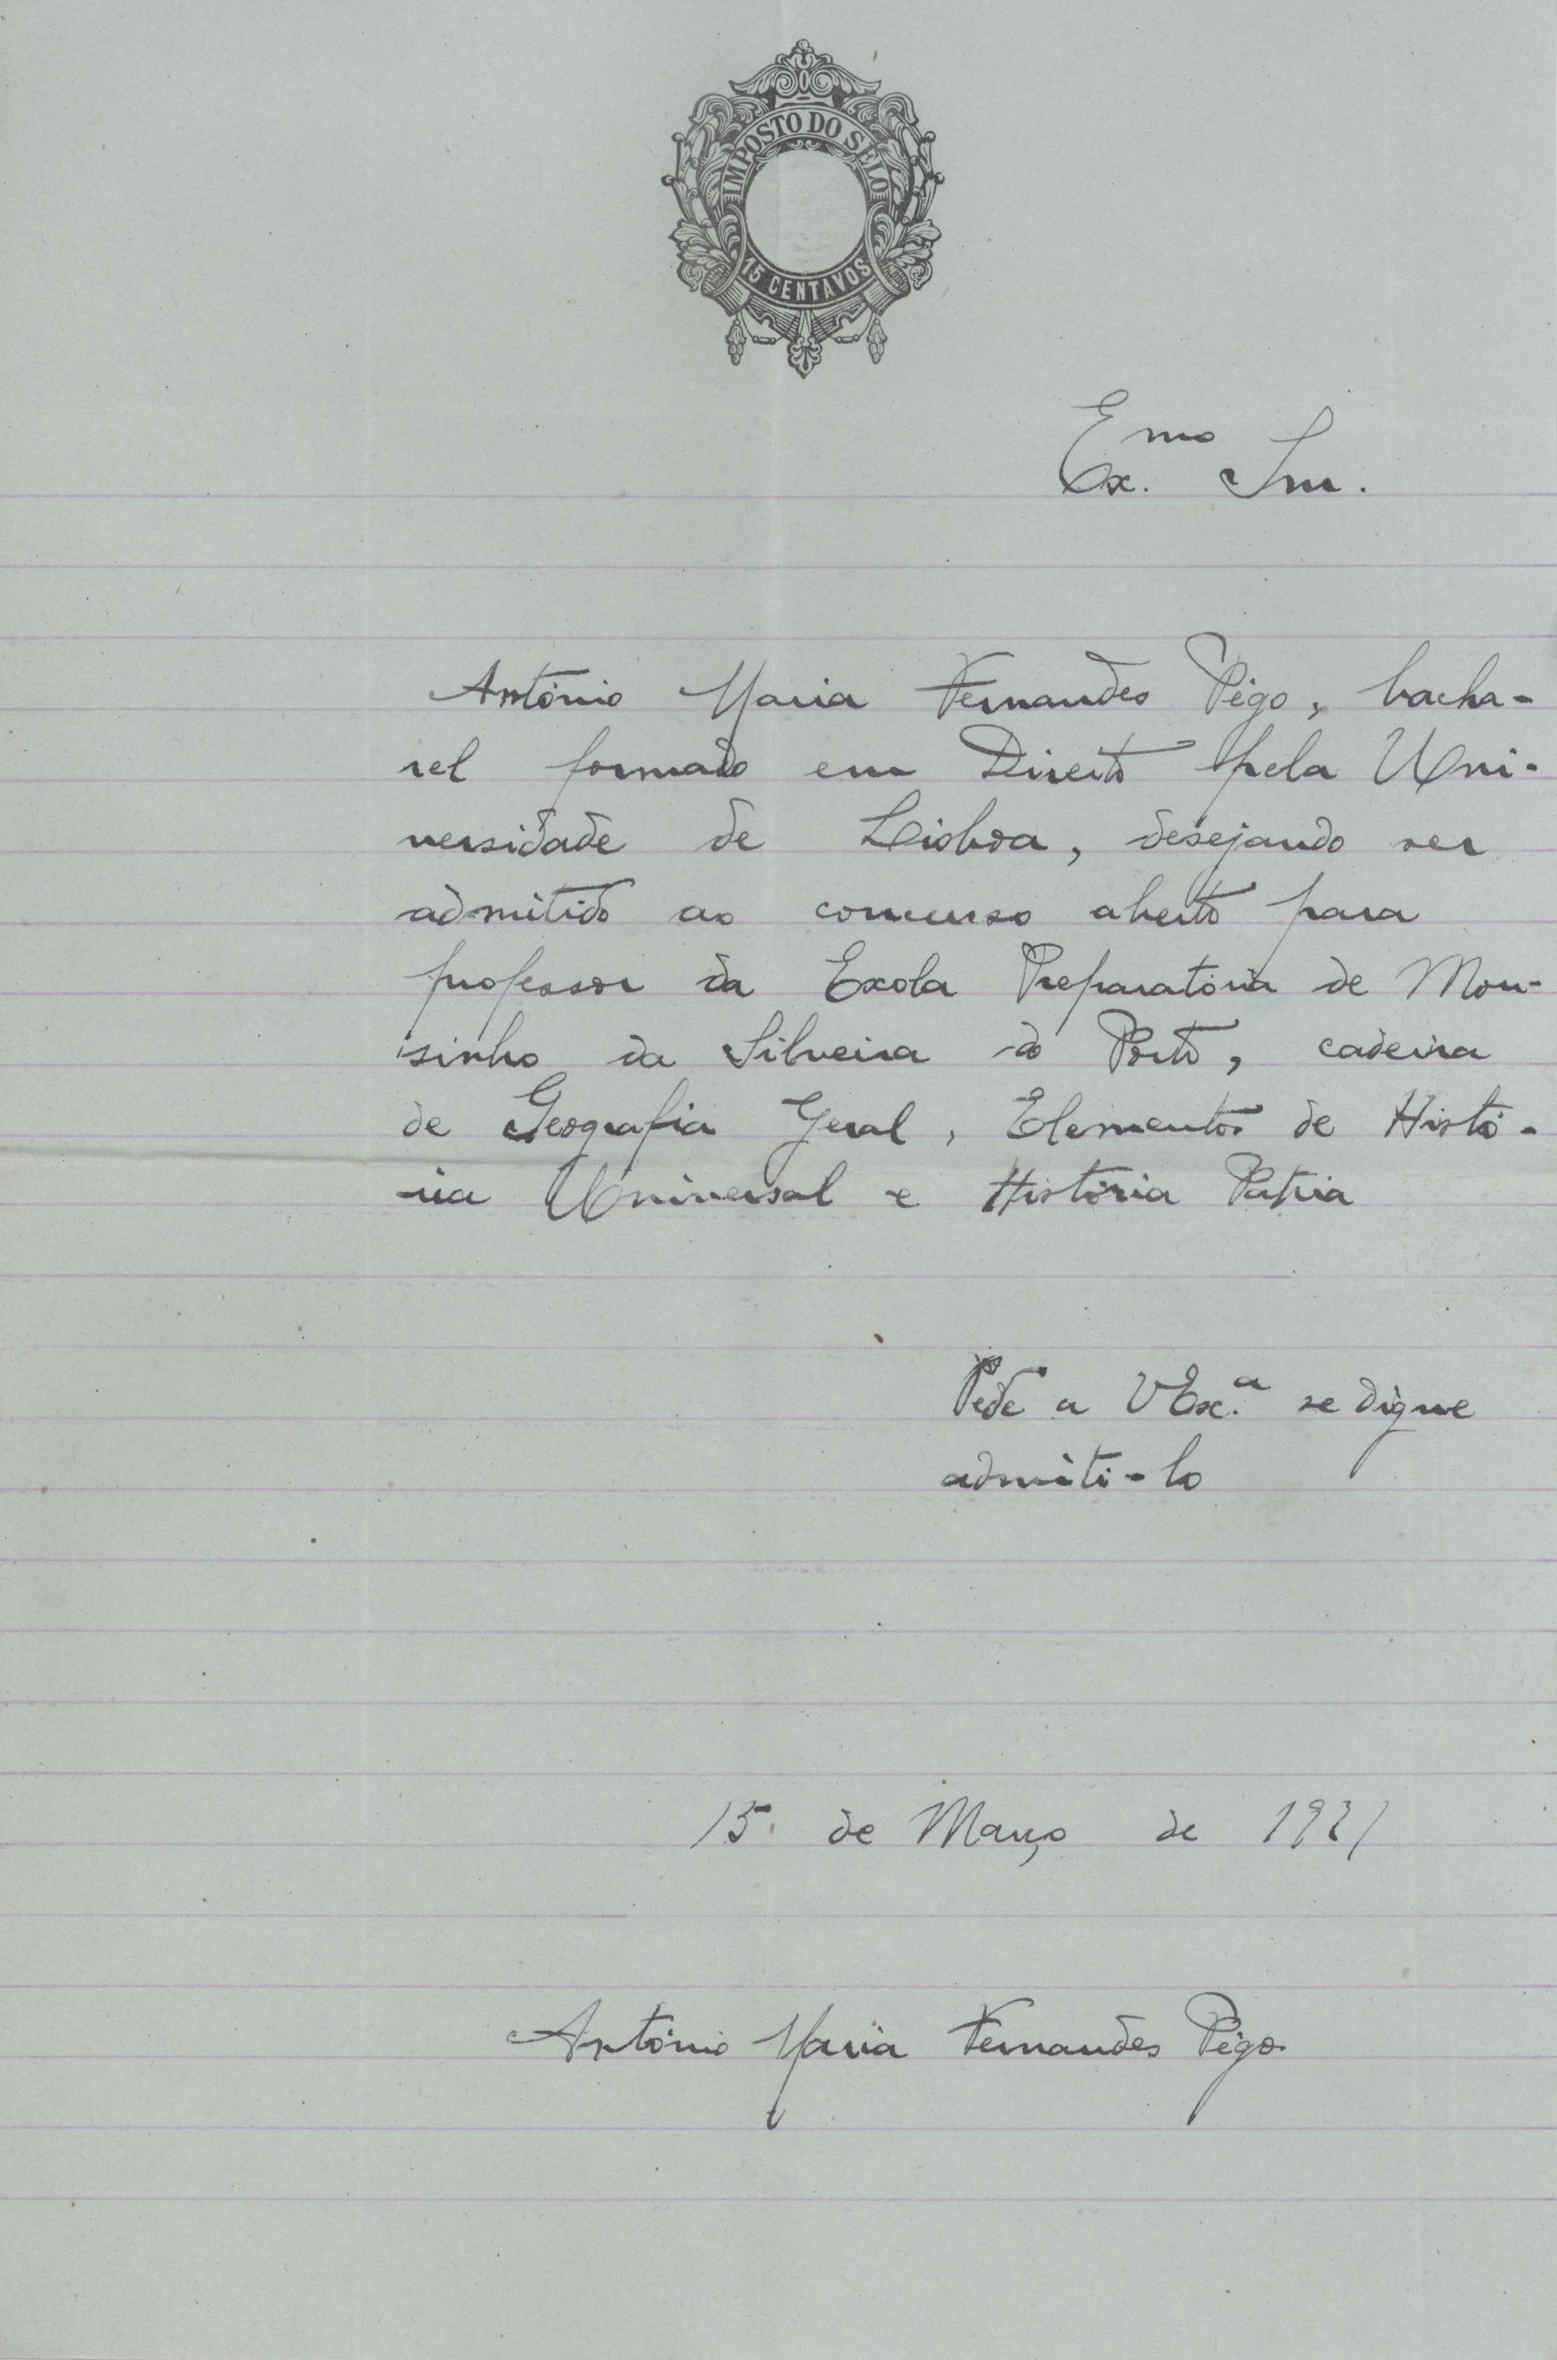 IMPOSTO DO SELO
15 CENTAVOS
Ex.mo Snr.
António Maria Fernandes Pêgo, bacha-
rel formado em Direito pela Uni-
versidade de Lisboa, desejando ser
admitido ao concurso aberto para
professor da Escola Preparatória de Mou-
sinho da Silveira do Porto, cadeira
de Geografia Geral, Elementos de Histó-
ria Universal e História Patria
Pede a V Ex.ª se digne
admiti-lo
15 de Março de
António Maria Fernandes Pêgo